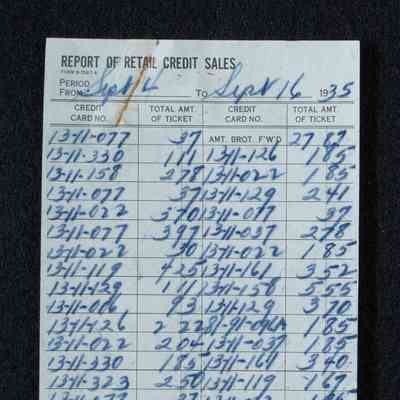 REPORT OF RETAIL CREDIT SALES
PERIOD
FROM Sept 4 TO Sept 16 1935
CREDIT CARD NO. TOTAL AMT. OF TICKET CREDIT CARD NO. TOTAL AMT. OF TICKET
13-11-077 37 AMT. BROT. F'W'D 27 87
13-11-330 111 13-11-126 185
13-11-158 278 13-11-022 185
13-11-077 37 13-11-129 241
13-11-022 370 13-11-077 37
13-11-077 397 13-11-037 278
13-11-022 30 13-11-022 185
13-11-119 425 13-11-161 352
13-11-129 111 13-11-158 555
13-11-006 93 13-11-129 370
13-11-126 222 185
13-11-022 204 13-11-037 185
13-11-330 185 13-11-161 340
13-11-323 250 13-11-119 167